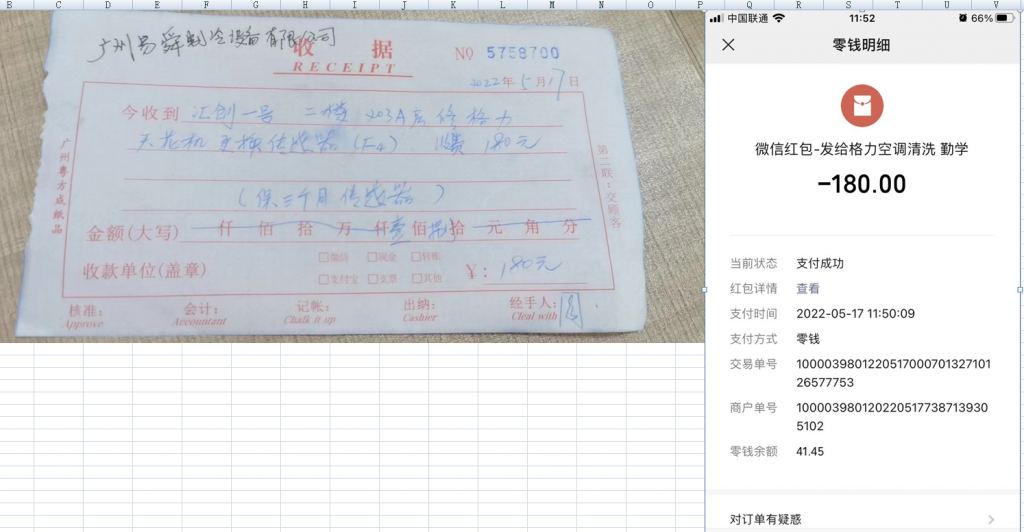 B C D E F G H I J K L M N O P Q R S T U V
广州易舜制冷设备有限公司
收 据
RECEIPT
№ 5758700
2022年5月17日
今收到 汇创一号 二楼 203A房修格力
天花机更换传感器(F4) 收费 180元
(保三个月传感器)
金额(大写) 仟 佰 拾 万 仟壹佰捌拾 元 角 分
收款单位(盖章)
□微信 □现金 □转帐
□支付宝 □支票 □其他
¥: 180元
核准: 会计: 记帐: 出纳: 经手人:
Approve Accountant Chalk it up Cashier Cleal with
广州粤方成纸品
第二联:交顾客
中国联通 11:52 66%
零钱明细
微信红包-发给格力空调清洗 勤学
-180.00
当前状态 支付成功
红包详情 查看
支付时间 2022-05-17 11:50:09
支付方式 零钱
交易单号 1000039801220517000701327101
26577753
商户单号 100003980120220517738713930
5102
零钱余额 41.45
对订单有疑惑